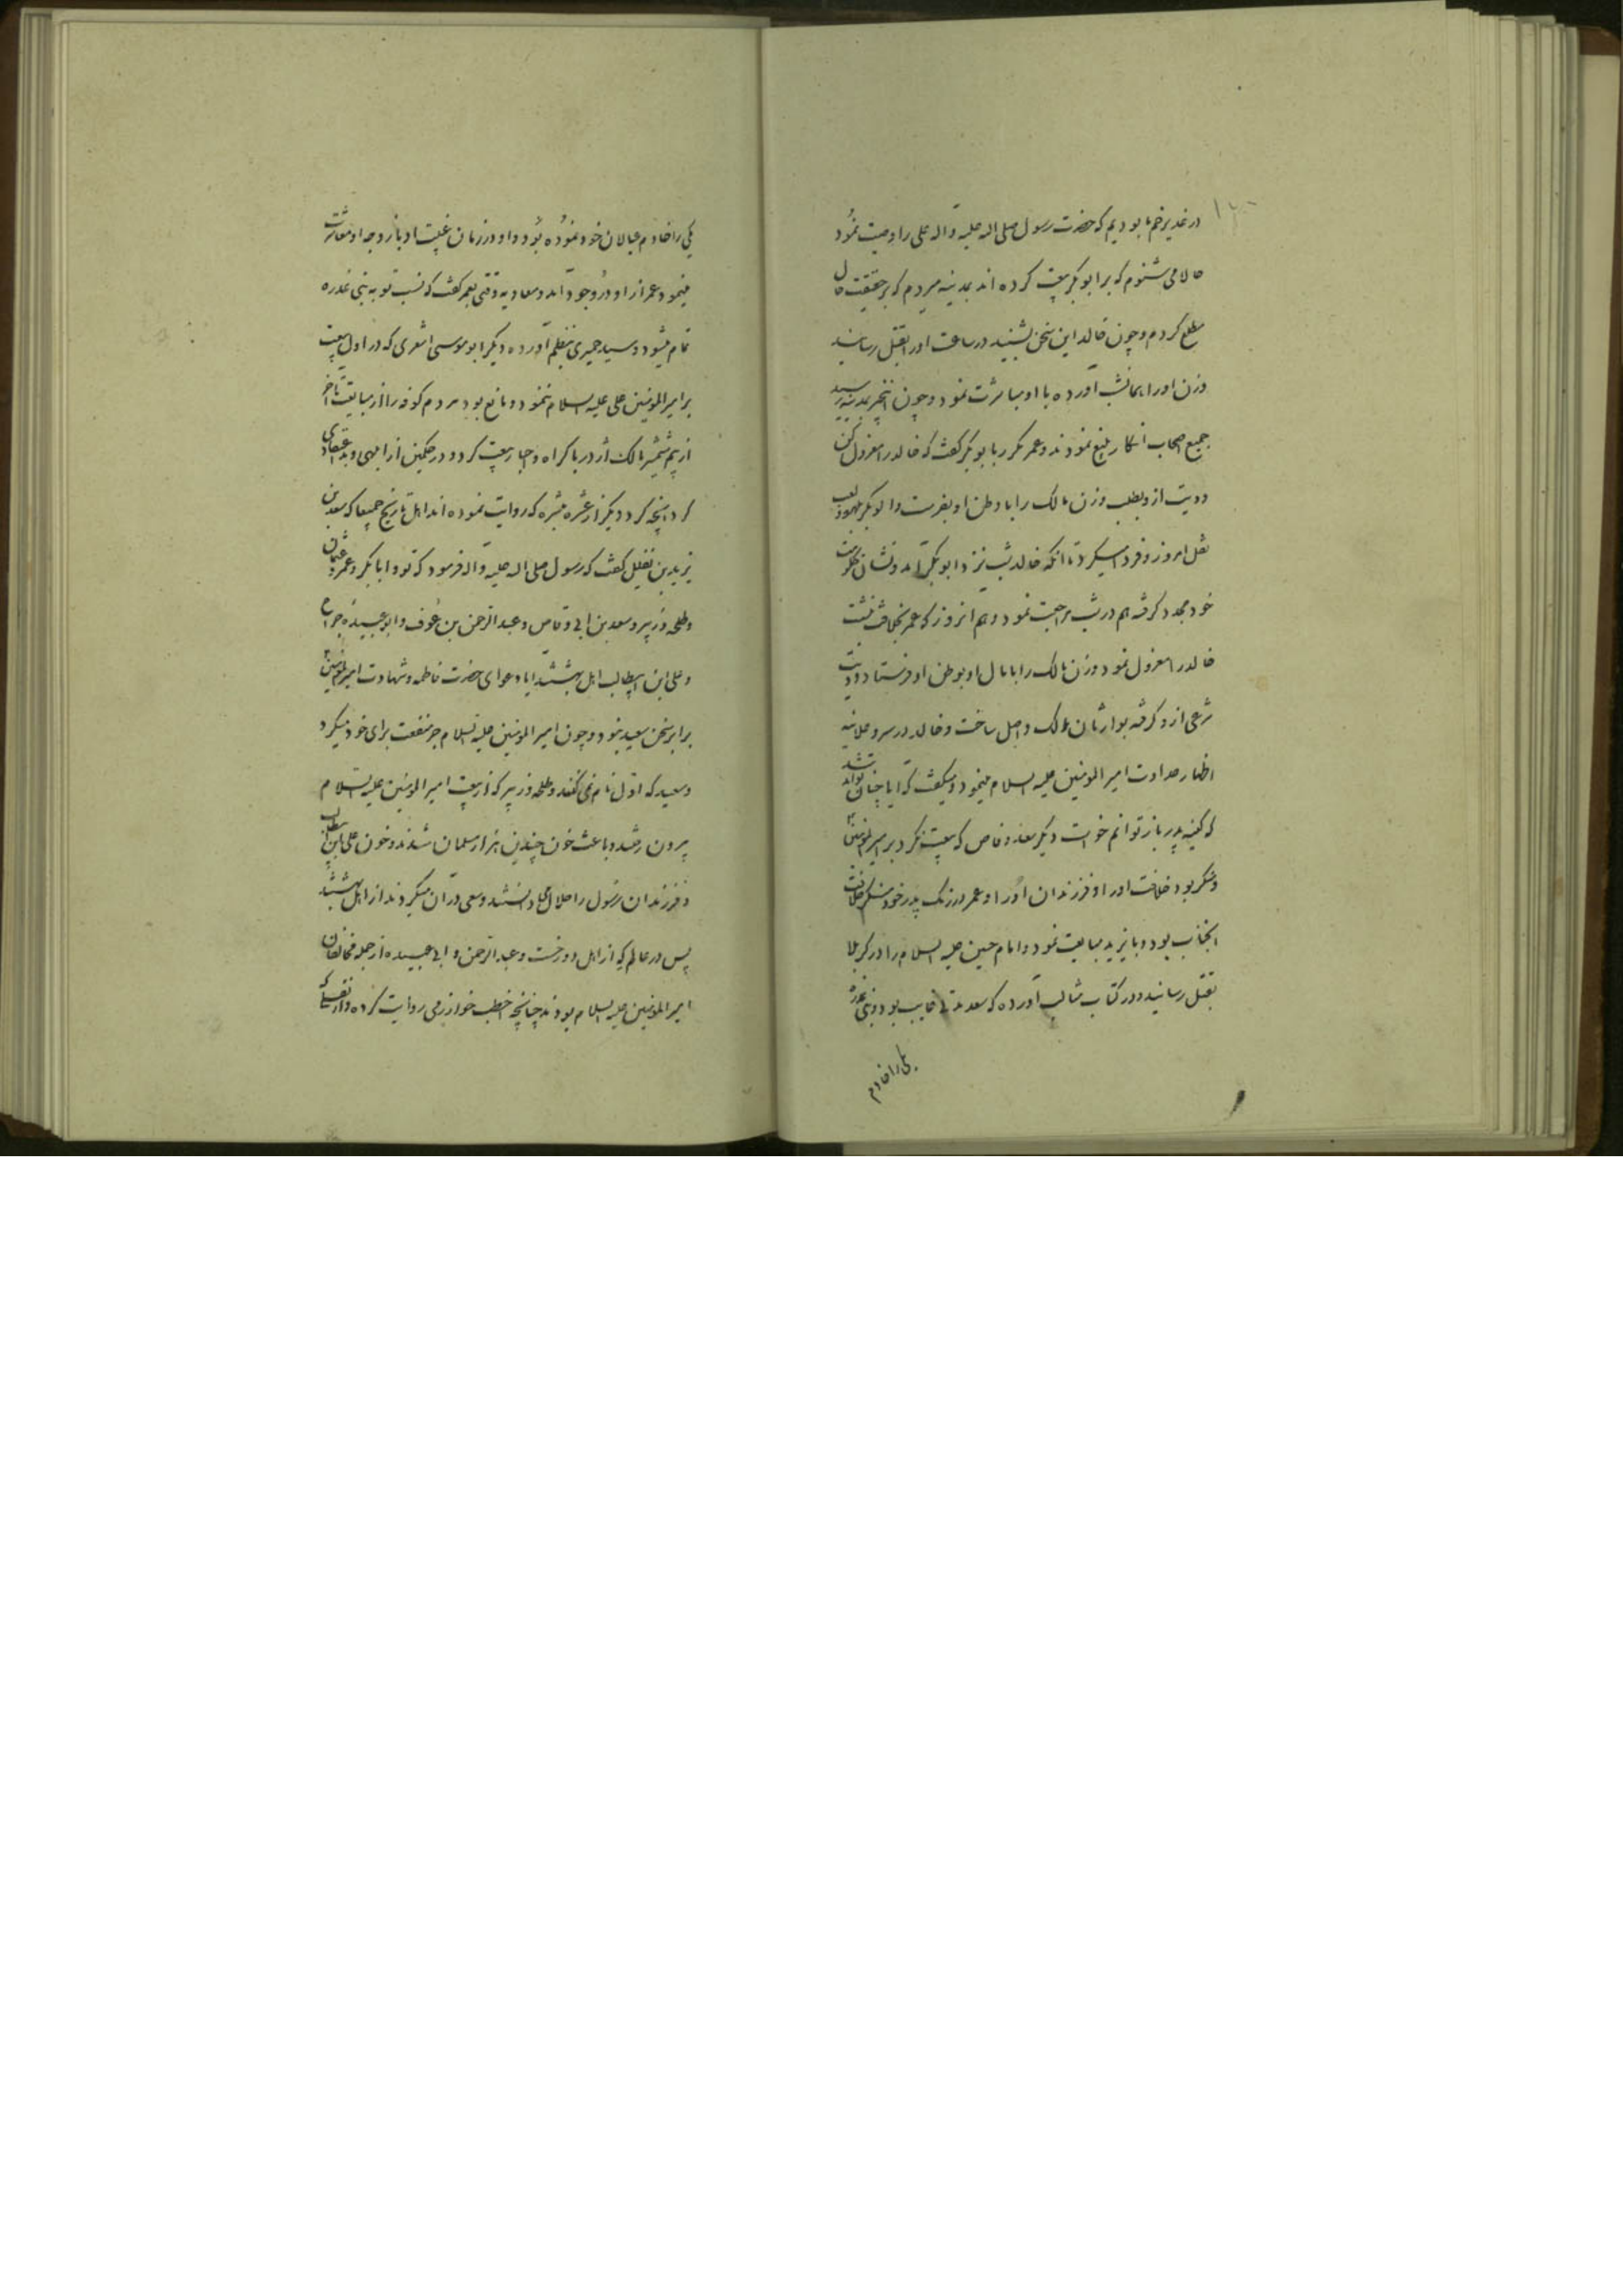 در غدیر خم ما بودیم که حضرت رسول صلی الله علیه و آله علی را وصیت نمود
حالا می شنوم که بر ابو بکر بیعت کرده اند بمدینه میروم که بر حقیقت حال
مطلع کردم و چون خالد این سخن بشنید در ساعت او را بقتل رسانید
و زن او را همانشب آورده با او مباشرت نمود و چون اینخبر بمدینه رسید
جمیع اصحاب انکار بلیغ نمودند و عمر مکرر بابو بکر کفت که خالد را معزول کن
و دیت ازو بطلب و زن مالک را با وطن او بفرست و ابو بکر
تعلل امروز و فردا میکرد تا انکه خالد شب نزد ابو بکر آمد و نشان حکومت
خود مجدد کرفته هم در شب مراجعت نمود و هم انروز که عمر بخلافت نشست
خالد را معزول نمود و زن مالک را با مال او بوطن او فرستاد و دیت
شرعی ازو کرفته بوارثان مالک واصل ساخت و خالد در سر و علانیه
اظهار عداوت امیر المومنین علیه السلام مینمود و میکفت که آیا چنان تواند شد
که کینه پدر باز توانم خواست دیکر سعد وقاص که بیعت نکرد بر امیر المومنین
و منکر بود خلافت او را و فرزندان او را و عمر در زنک پدر خود منکر خلافت
انجناب بود و با یزید مبایعت نمود و امام حسین علیه السلام را در کربلا
بقتل رسانید و در کتاب مثالب آورده که سعد مدتی غایب بود و بنی عذره
یکی را خادم
یکی را خادم عیالان خود نموده بود و او در زمان غیبت او با زوجه او معاشرت
مینمود عمر از او در وجود آمد و معاویه وقتی بعمر کفت که نسب تو به بنی عذره
تمام میشود و سید حمیری بنظم آورده دیکر ابو موسی اشعری که در اول بیعت
بر امیر المومنین علی علیه السلام ننمود و مانع بود مردم کوفه را از مبایعت تا آخر
از بیم شمشیر مالک اشتر باکراه و اجبار بیعت کرد و در حکمین از ابلهی و بد اعتقادی
کرد انچه کرد دیکر از عشره مبشره که روایت نموده اند اهل تاریخ جمیعا که سعید بن
زید بن نفیل کفت که رسول صلی الله علیه و آله فرمود که تو و ابا بکر و عمر و عثمان
و طلحه و زبیر و سعد بن ابی وقاص و عبد الرحمن بن عوف و ابو عبیده جراح
و علی ابن ابیطالب اهل بهشتند ایا دعوای حضرت فاطمه و شهادت امیر المومنین
برابر سخن سعید نبود و چون امیر المومنین علیه السلام جر منفعت برای خود میکرد
و سعید که اول نام نمی کنند و طلحه و زبیر که از بیعت امیر المومنین علیه السلام
بیرون رفتند و باعث خون چندین هزار مسلمان شدند و خون علی ابن ابیطالب
و فرزندان رسول را حلال میدانستند و سعی در آن میکردند از اهل بهشتند
پس در عالم که از اهل دوزخست و عبد الرحمن و ابی عبیده از جمله مخالفان
امیر المومنین علیه السلام بودند چنانچه اخطب خوارزمی روایت کرده